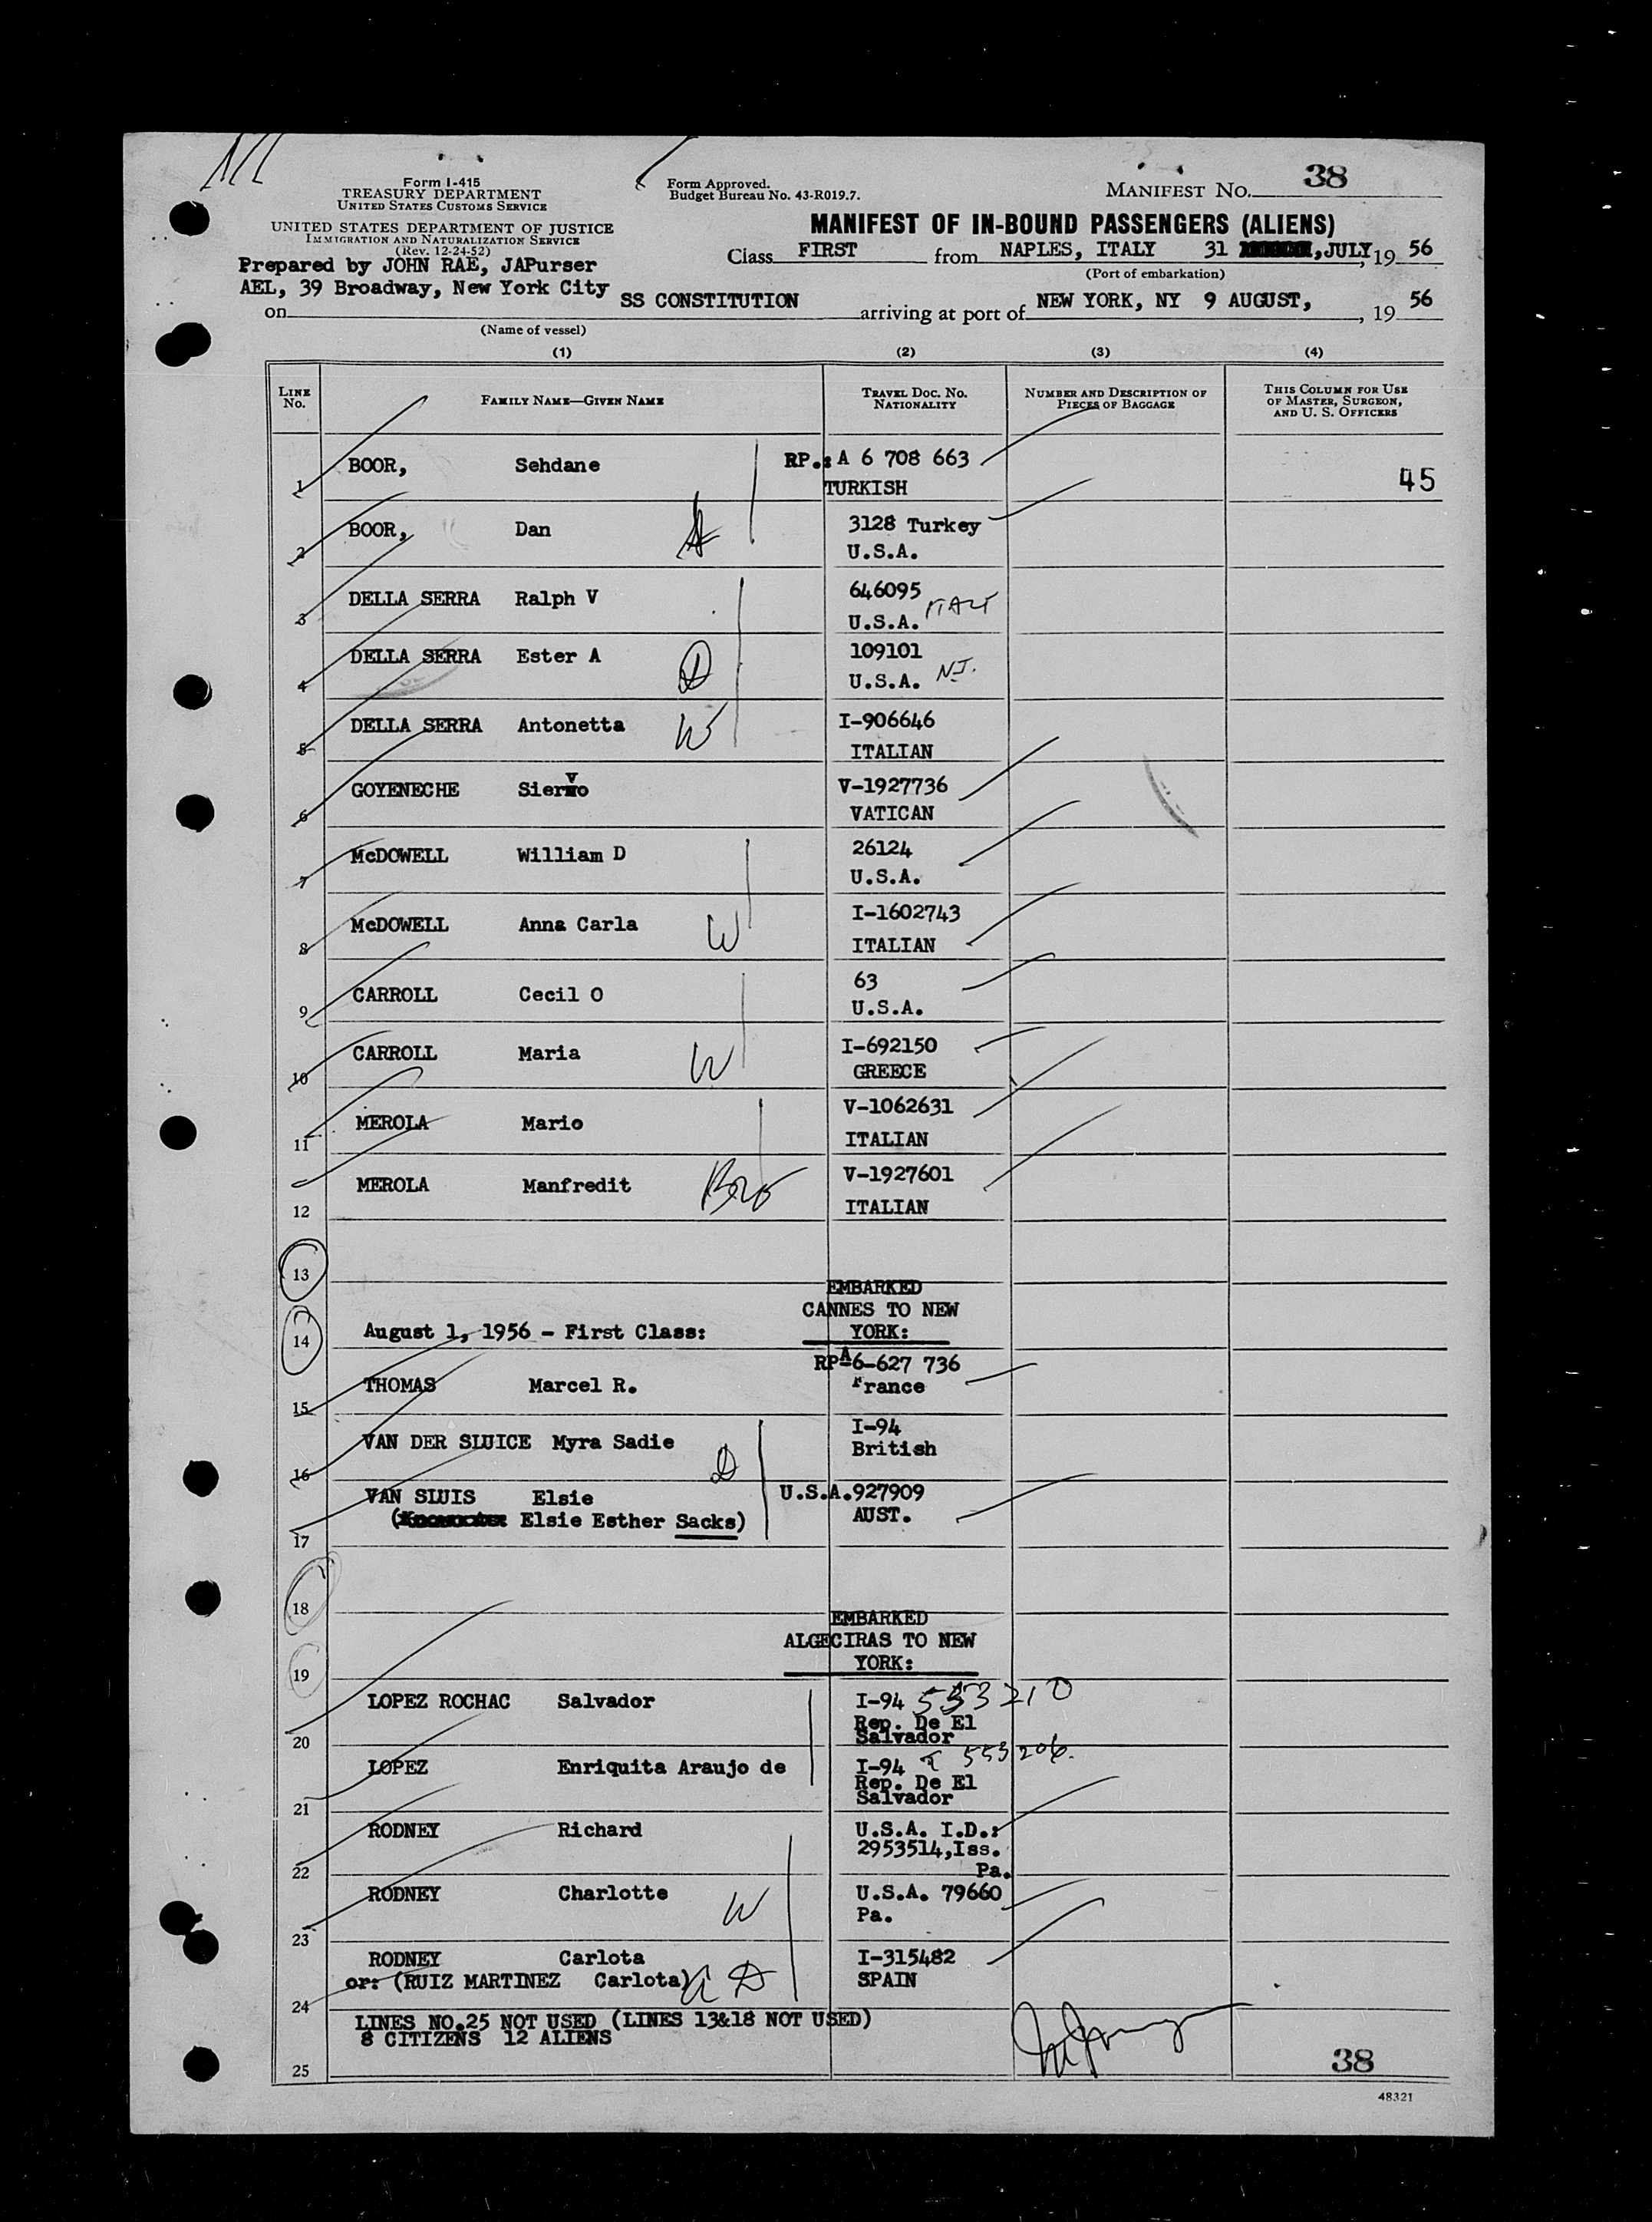 38
Form I-415
TREASURY DEPARTMENT
UNITED STATES CUSTOMS SERVICE
UNITED STATES DEPARTMENT OF JUSTICE
IMMIGRATION AND NATURALIZATION SERVICE
(Rev. 12-24-52)
Form Approved.
Budget Bureau No. 43-R019.7.
MANIFEST NO.
MANIFEST OF IN-BOUND PASSENGERS (ALIENS)
Class FIRST from NAPLES, ITALY 31 ,JULY 19 56
(Port of embarkation)
Prepared by JOHN RAE, JAPurser
AEL, 39 Broadway, New York City
on SS CONSTITUTION arriving at port of NEW YORK, NY 9 AUGUST, , 19 56
(Name of vessel)
(1) (2) (3) (4)
LINE NO. FAMILY NAME—GIVEN NAME TRAVEL DOC. NO. NATIONALITY NUMBER AND DESCRIPTION OF PIECES OF BAGGAGE THIS COLUMN FOR USE OF MASTER, SURGEON, AND U. S. OFFICERS
1 BOOR, Sehdane RP.: A 6 708 663
TURKISH 45
2 BOOR, Dan 3128 Turkey
U.S.A.
3 DELLA SERRA Ralph V 646095
U.S.A. ITALY
4 DELLA SERRA Ester A D 109101
U.S.A. N.J.
5 DELLA SERRA Antonetta W I-906646
ITALIAN
6 GOYENECHE Siervo V-1927736
VATICAN
7 McDOWELL William D 26124
U.S.A.
8 McDOWELL Anna Carla W I-1602743
ITALIAN
9 CARROLL Cecil O 63
U.S.A.
10 CARROLL Maria W I-692150
GREECE
11 MEROLA Mario V-1062631
ITALIAN
12 MEROLA Manfredit Bro V-1927601
ITALIAN
13
EMBARKED
CANNES TO NEW
14 August 1, 1956 - First Class: YORK:
15 THOMAS Marcel R. RPA6-627 736
France
16 VAN DER SLUICE Myra Sadie D I-94
British
17 VAN SLUIS Elsie U.S.A.927909
( Elsie Esther Sacks) AUST.
18
EMBARKED
ALGECIRAS TO NEW
19 YORK:
20 LOPEZ ROCHAC Salvador I-94 553210
Rep. De El
Salvador
21 LOPEZ Enriquita Araujo de I-94 553206.
Rep. De El
Salvador
22 RODNEY Richard U.S.A. I.D.:
2953514,Iss.
Pa.
23 RODNEY Charlotte W U.S.A. 79660
Pa.
24 RODNEY Carlota I-315482
or: (RUIZ MARTINEZ Carlota) SPAIN
LINES NO.25 NOT USED (LINES 13&18 NOT USED)
8 CITIZENS 12 ALIENS
25
38
48321